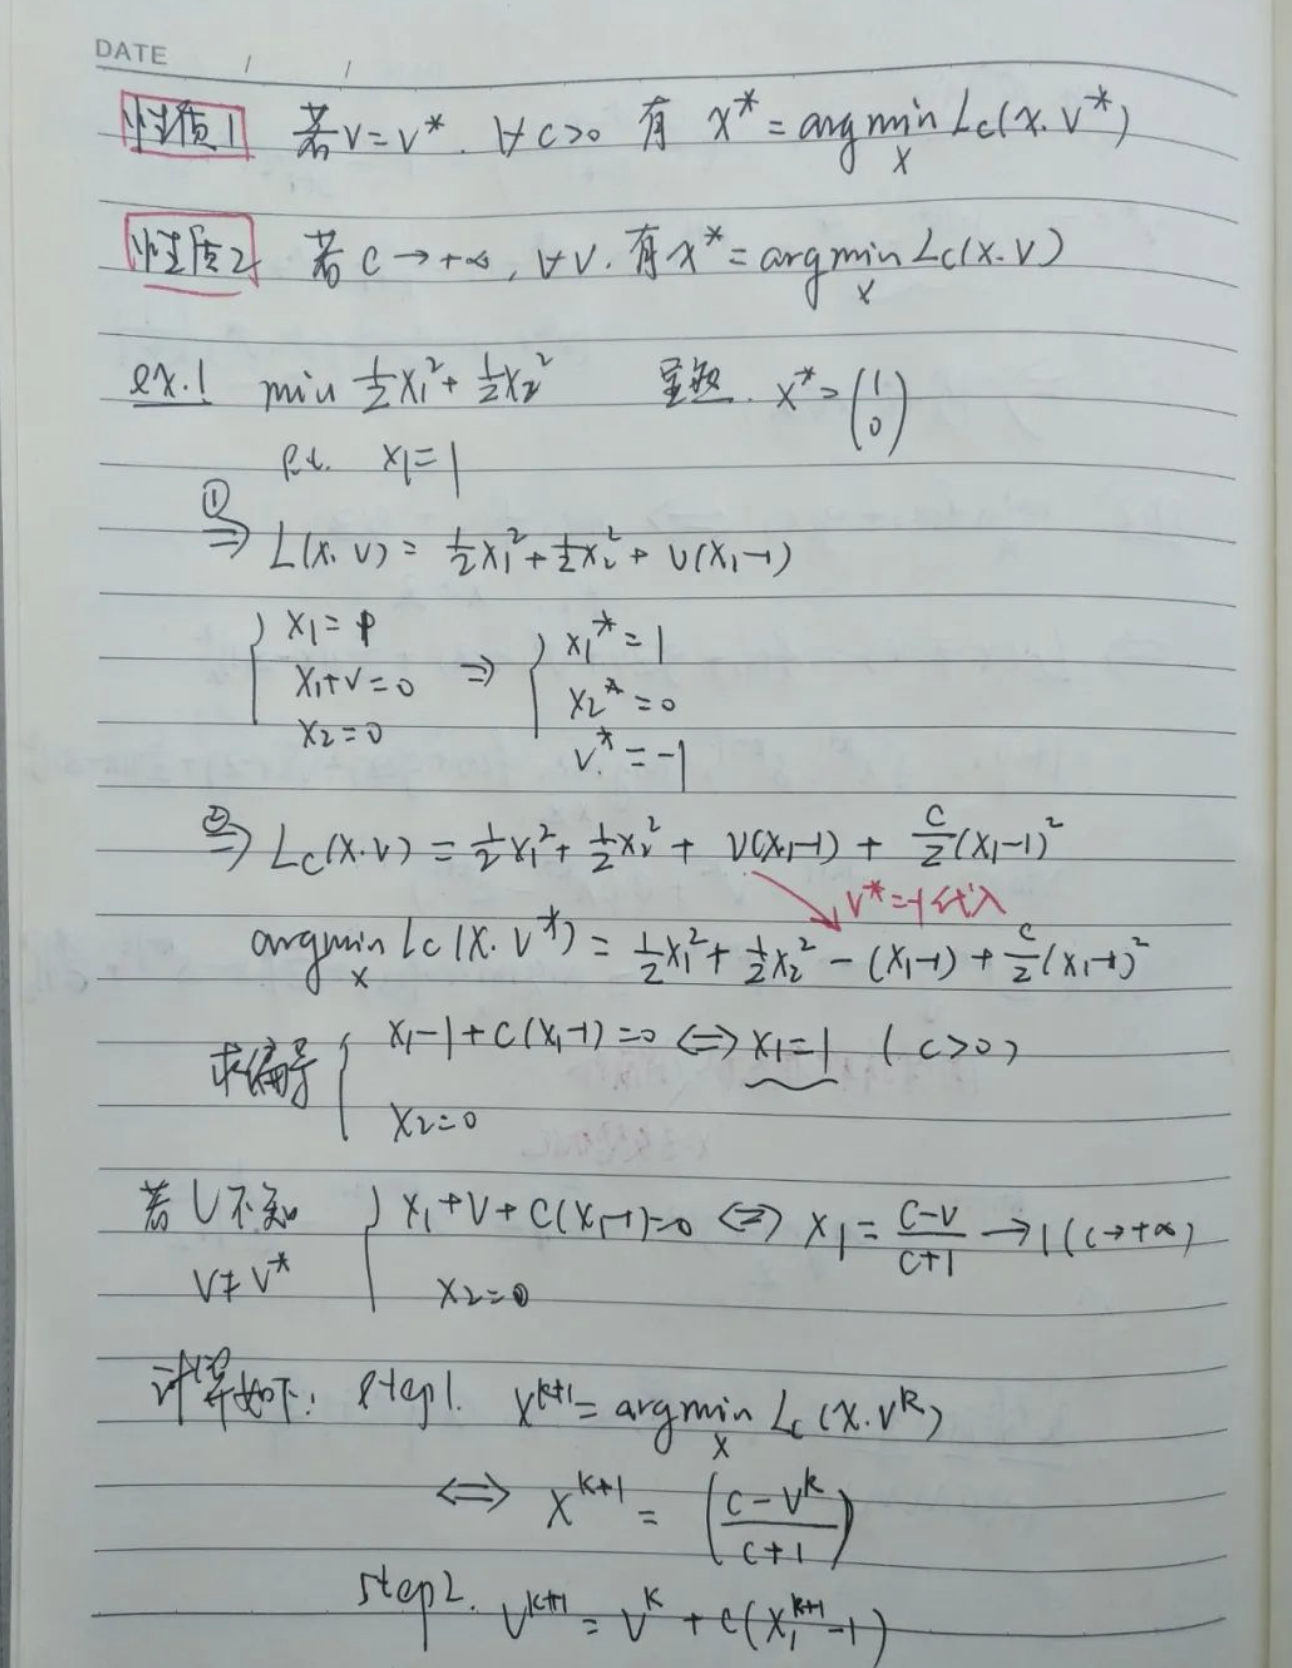 DATE / /
性质1 若 v=v*. ∀c>0 有 x* = arg min_x Lc(x.v*)
性质2 若 c→+∞, ∀v. 有 x* = argmin_x Lc(x.v)
ex.1 min ½x₁² + ½x₂² 显然. x* = (1 0)
s.t. x₁=1
① ⇒ L(x.v) = ½x₁² + ½x₂² + v(x₁-1)
{ x₁=1 ⇒ { x₁*=1
x₁+v=0 x₂*=0
x₂=0 v*=-1
② ⇒ Lc(x.v) = ½x₁² + ½x₂² + v(x₁-1) + c/2(x₁-1)²
v*=-1代入
argmin_x Lc(x.v*) = ½x₁² + ½x₂² - (x₁-1) + c/2(x₁-1)²
求偏导 { x₁-1+c(x₁-1)=0 ⇔ x₁=1 (c>0)
x₂=0
若 v 不知 { x₁+v+c(x₁-1)=0 ⇔ x₁ = (c-v)/(c+1) → 1 (c→+∞)
v≠v* x₂=0
计算如下: step1. x^{k+1} = argmin_x Lc(x.v^k)
⇔ x^{k+1} = ((c-v^k)/(c+1))
step2. v^{k+1} = v^k + c(x₁^{k+1}-1)